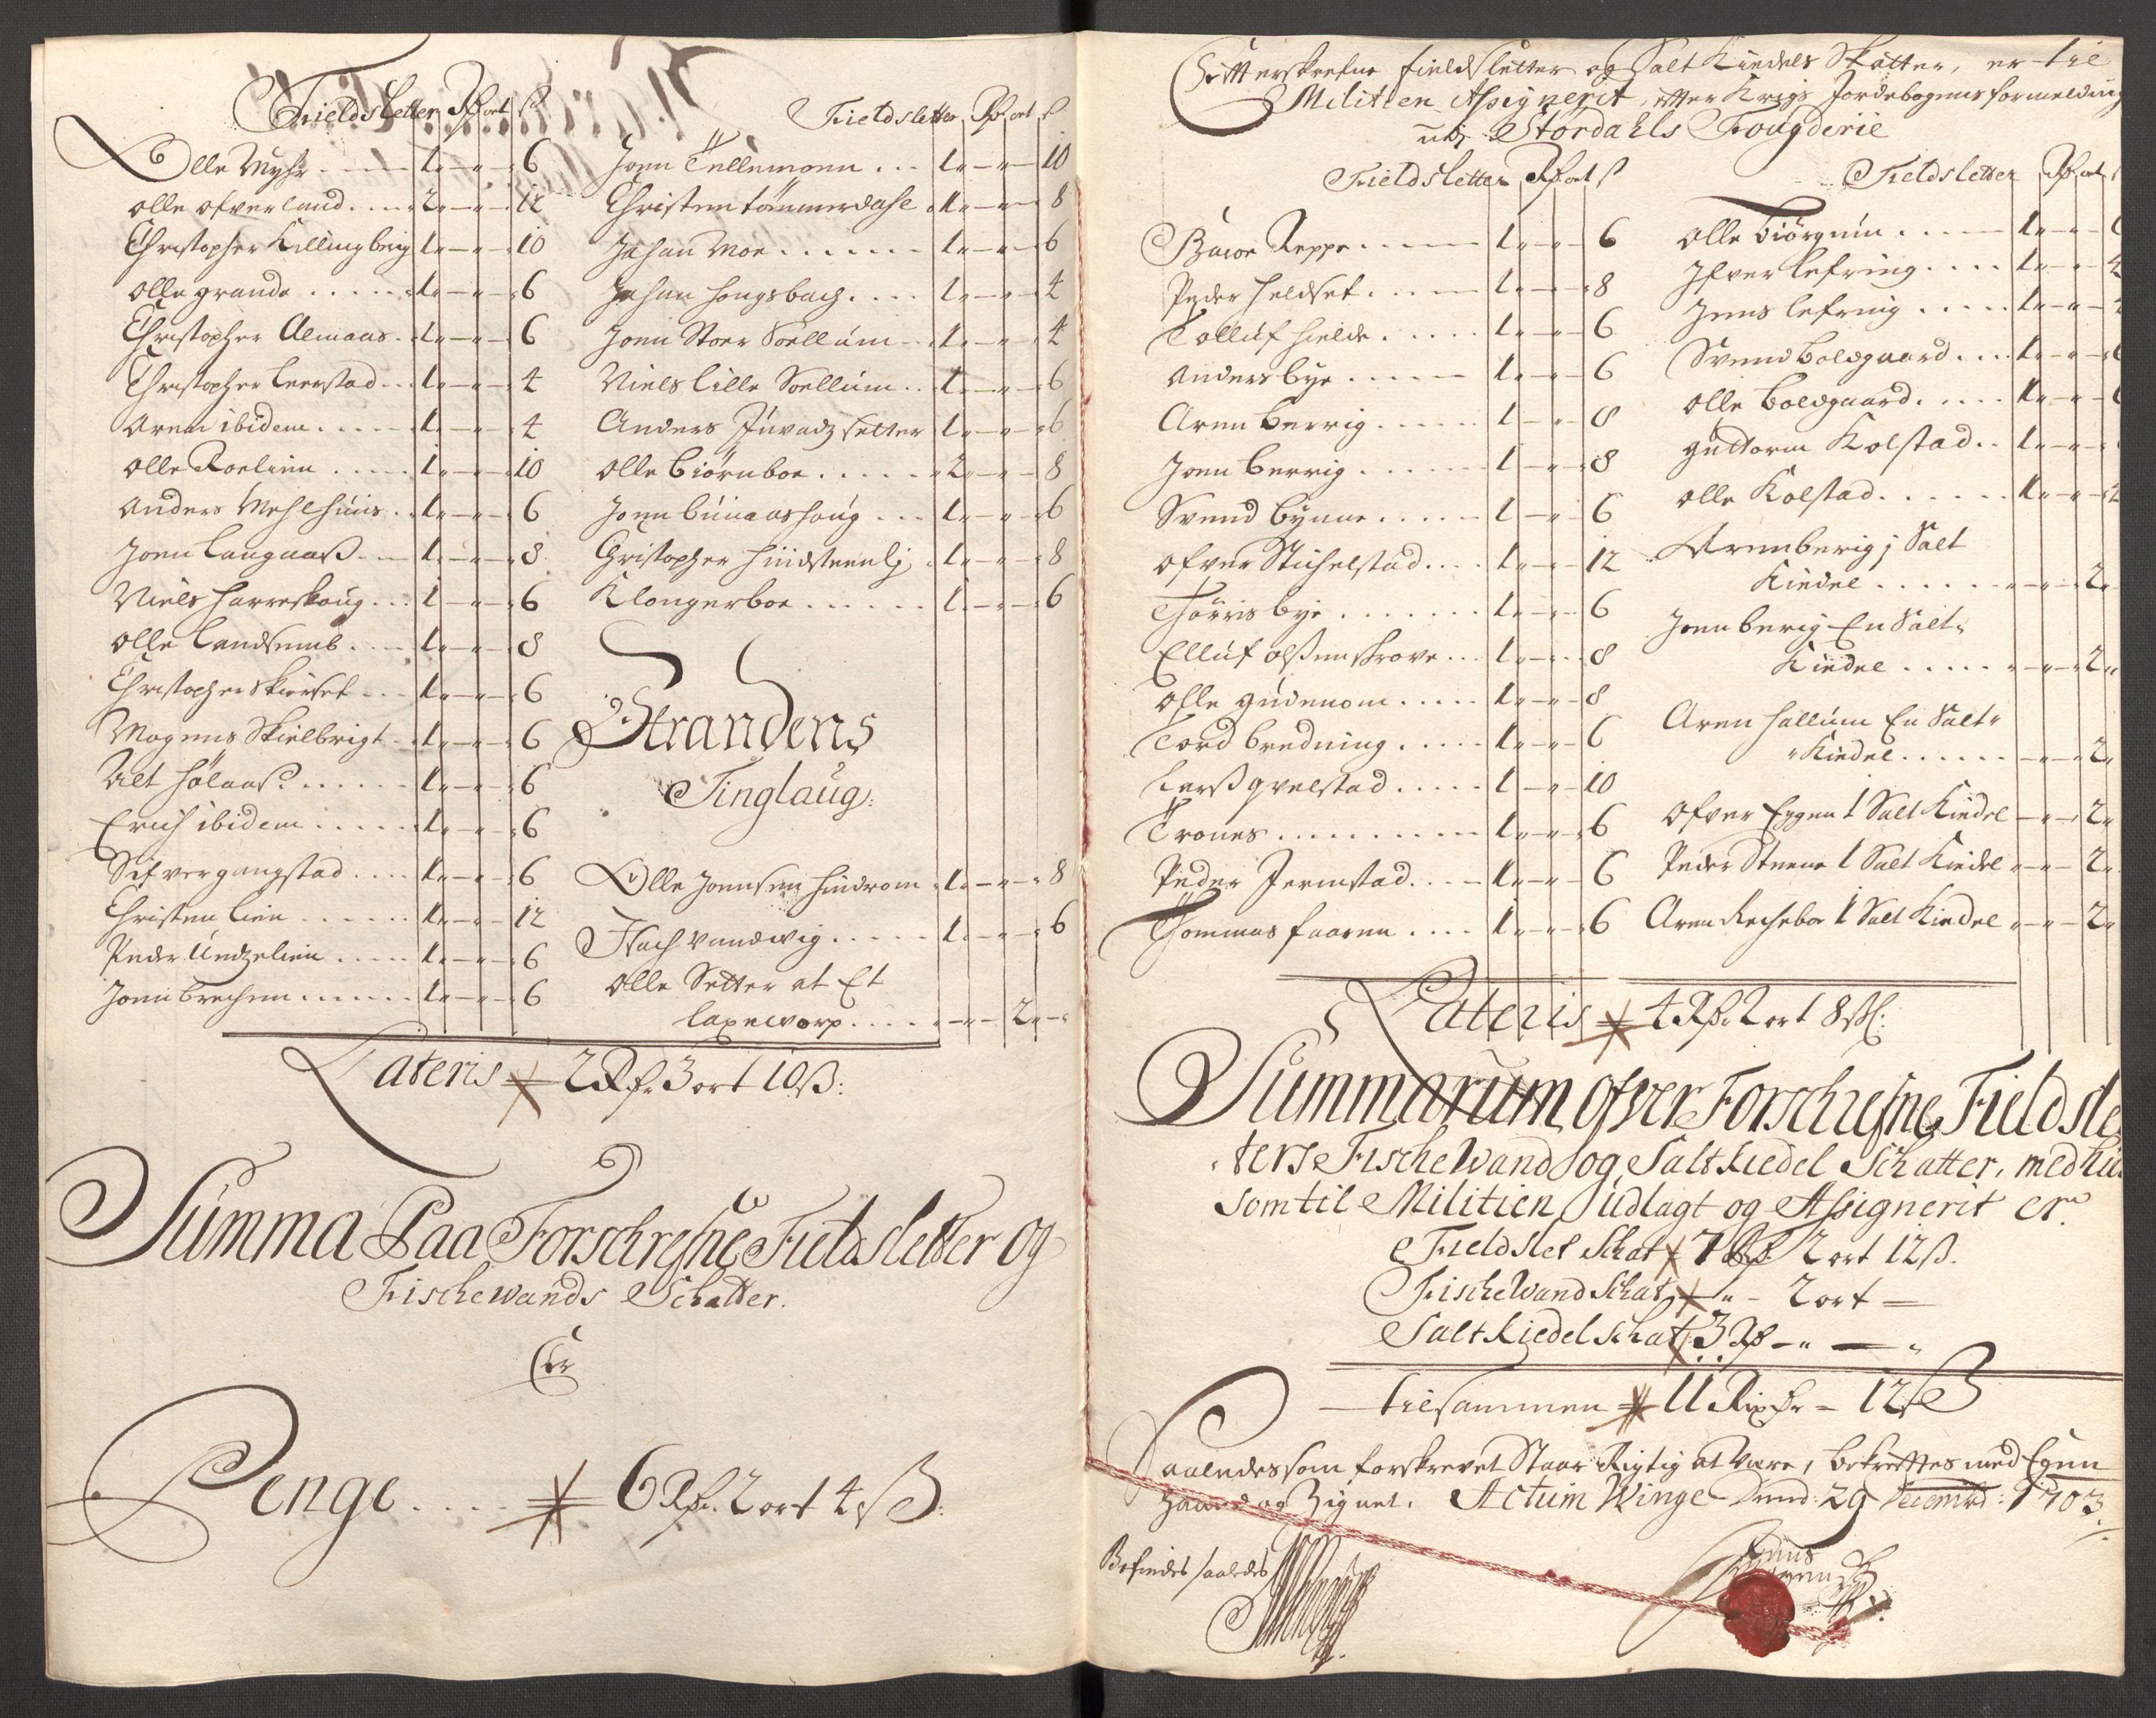 Fieldsletter Rdr ort ß
Olle Myhr . . . 1 " — " — 6
Olle ofverland . . . . 2 " — " — 12
Christopher Killingberg 1 " — " — 10
Olle grande . . . . . 1 " — " — 6
Christopher Almaas . 1 " — " — 6
Christopher Leerstad . . 1 " — " — 4
Aren ibidem . . . . 1 " — " — 4
Olle Roelien . . . . 1 " — " — 10
Anders Mehlhuus . 1 " — " — 6
Joen Langaas . . 1 " — " — 8
Niels Harreskoug . . . 1 — " — 6
Olle Landsemb . . . 1 " — " — 8
Christopher Skierset . . 1 " — " — 6
Mogens Skielbrigt . 1 " — " — 6
Alt Hølaas . . . . . . 1 " — " — 6
Erich ibidem . . . . . 1 " — " — 6
Sifver gangstad . . . . 1 " — " — 6
Christen Lien . . . . . . 1 " — " — 12
Peder Undzelien . . . . . 1 " — " — 6
Joen Brechen . . . . . . 1 " — " — 6
Fieldsletter Rdr ort ß
Joen Tellemonn . . . 1 " — " — 10
Christen tømmerdahl . 1 " — " — 8
Johan Moe . . . . . . 1 " — " — 6
Johan Hongsbach . . . . 1 " — " — 4
Joen Stoer Soellum . . 1 " — " — 4
Niels lille Soellum . . 1 " — " — 6
Anders Juvadzsetter 1 " — " — 6
Olle Biørnboe . . . . . 2 " — " — 8
Joen Bünaashoug . . . 1 " — " — 6
Christopher Hindsteenlj . 1 " — " — 8
Klongerboe . . . . . . 1 " — " — 6
Strandens
Tinglaug:
Olle Joensen Hindrom . 1 " — " — 8
Isach Vandvig . . . . . 1 " — " — 6
Olle Setter at Et
laxeworp . . . . . " — " — 2 " — "
Lateris 2 Rdr 3 ort 10 ß:
Summa Paa Forschrefne Fieldsletter og
Fischewands Schatter.
Er
Penge . . . . 6 Rdr 2 ort 4 ß:
Efterskrefne fieldsletter og Salt Kiedels Skatter, er til
Militien Assignerit, efter Krigs Jordebogens formelding
udj Størdahls Fougderie
Fieldsletter Rdr ort ß
Baroe Reppe . . . . . 1 " — " — 6
Peder Heldset . . . . 1 " — " — 8
Tolluf Hielde . . . . . 1 " — " — 6
Anders bye . . . . . 1 " — " — 6
Aren Berrig . . . . . 1 — " — 8
Joen Berrig . . . . . . 1 — " — 8
Svend Bynne . . . . 1 — " — 6
Ofver Stichelstad . . . . 1 " — " — 12
Thørris bye . . . . . . 1 " — " — 6
Elluf olsen skrove . . . 1 " — " — 8
Olle gudenom . . . . . 1 " — " — 8
Tord Bredning . . . . . 1 " — " — 6
Larß qvelstad . . . . . 1 — " — 10
Trones . . . . . . . . . 1 " — " — 6
Peder Jermstad . . . 1 " — " — 6
Thommas Faaren . . . . 1 " — " — 6
Fieldsletter Rdr ort
Olle Biørgum . . . . . 1 " — " —
Ifver lefring . . . . 1 " — " —
Jens lefring . . . . . 1 " — " —
Svend Bolsgaard . . . . 1 " — " —
Olle Bolsgaard . . . . . 1 " — " —
guttorm Kolstad . . 1 " — " —
Olle Kolstad . . . . . . 1 " — " —
Aren berig j Salt
Kiedel . . . . . . " — " — 2 "
Joen berig En Salt "
Kiedel . . . . . " — " — 2 "
Aren Hallum En Salt "
" Kiedel . . . . . . — " — 2 "
Ofver Eggen 1 Salt Kiedel — " — 2 "
Peder Steene 1 Salt Kiedel " — " — 2 "
Aren Recheboe 1 Salt Kiedel " — " — 2 "
Lateris 4 Rdr 2 ort 8 ß:
Summarum ofver Forschrefne Fieldslet
ters Fische Wand og Salt Kiedel Schatter, med
som til Militien Udlagt og Assignerit er.
Fieldslet Schat 7 Rdr 2 ort 12 ß.
Fische Wand Schat — " — 2 ort —
Salt Kiedel Schat 3 Rdr — " — "
tilsammen 11 Rixdr — 12 ß
Saaledes som forskrevet Staar Rigtig at være, bekreftes med Egen
Haand og Zignet. Actum Winge Dend: 29 Decembr: 1703.
Befindes saaledes